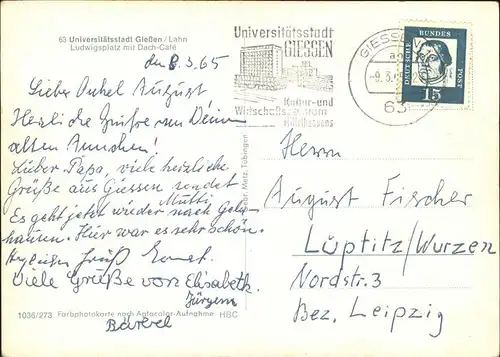 63 Universitätsstadt Gießen / Lahn
Ludwigsplatz mit Dach-Café
den 8.3.65
Lieber Onkel August
Herzliche Grüße von Deinem
alten Annchen!
Lieber Papa, viele herzliche
Grüße aus Giessen sendet
Mutti,
Es geht jetzt wieder nach Geln-
hausen. Hier war es sehr schön.
Gruß Ernst.
Viele Grüße von Elisabeth
Jürgen
Bärbel
1036/273 Farbphotokarte nach Agfacolor-Aufnahme HBC
Metz, Tübingen
Universitätsstadt
GIESSEN
Kultur- und
Wirtschaftszentrum
Mittelhessens
GIESSEN
-9.3.65
63
DEUTSCHE BUNDESPOST
15
Herrn
August Fischer
Lüptitz/Wurzen
Nordstr. 3
Bez. Leipzig